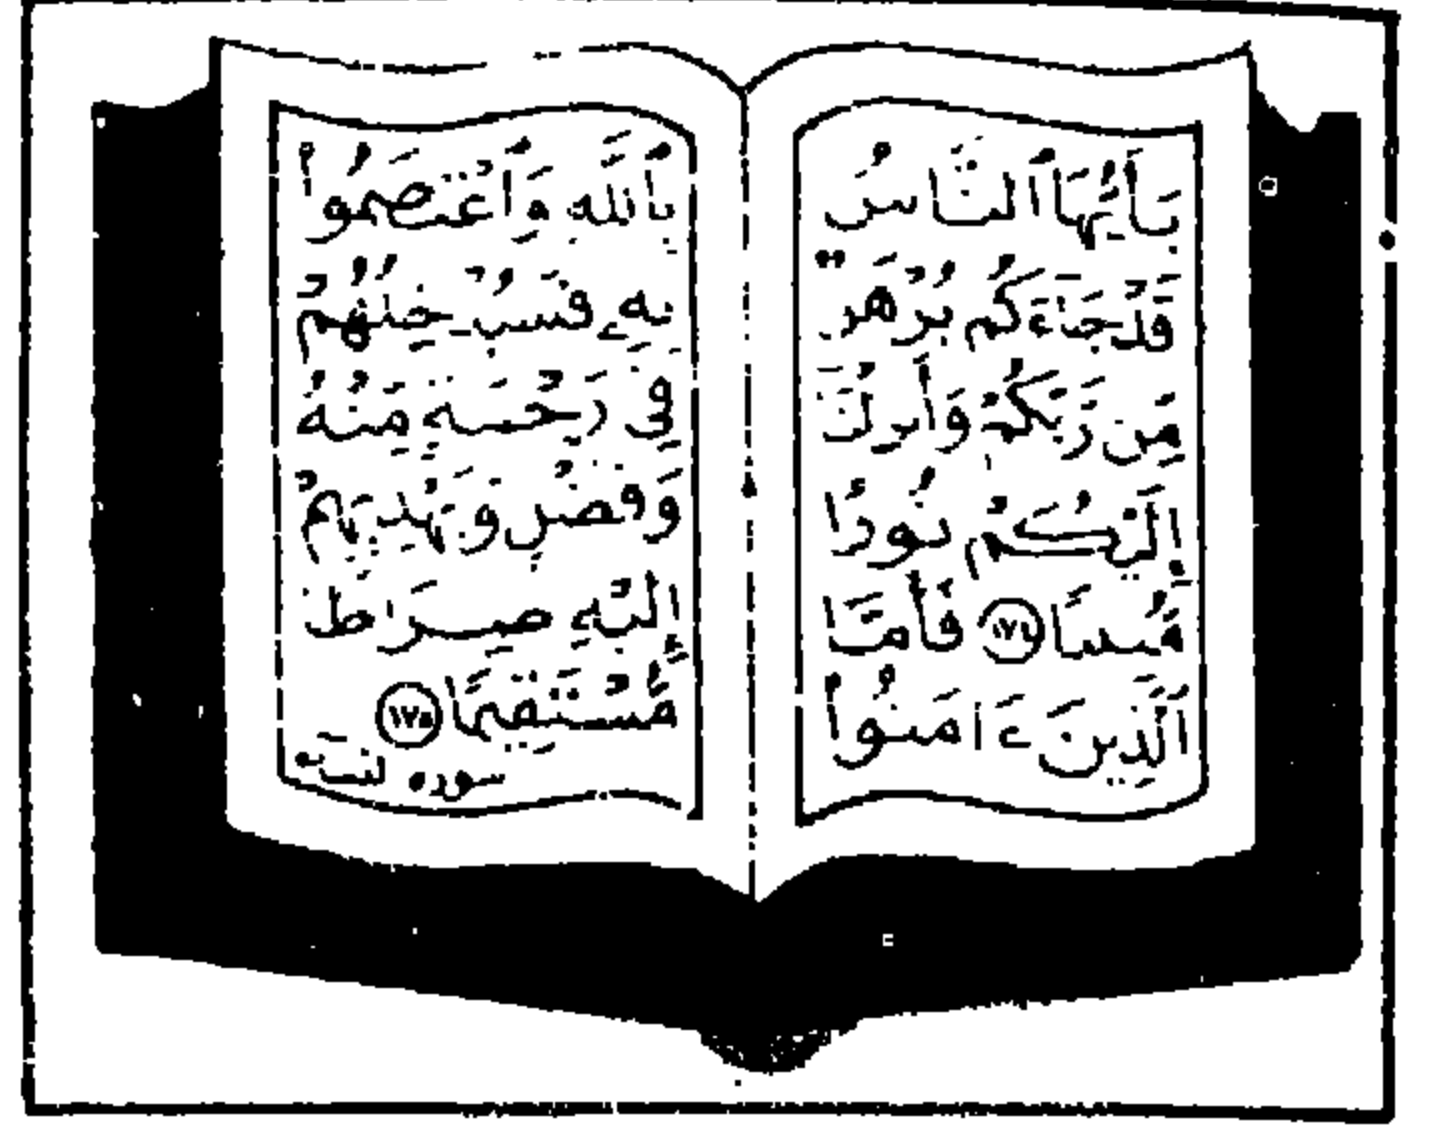 يَٰأَيُّهَا ٱلنَّاسُ
قَدْ جَآءَكُم بُرْهَٰنٌ
مِّن رَّبِّكُمْ وَأَنزَلْنَآ
إِلَيْكُمْ نُورًا
مُّبِينًا ١٧٤ فَأَمَّا
ٱلَّذِينَ ءَامَنُوا۟
بِٱللَّهِ وَٱعْتَصَمُوا۟
بِهِۦ فَسَيُدْخِلُهُمْ
فِى رَحْمَةٍ مِّنْهُ
وَفَضْلٍ وَيَهْدِيهِمْ
إِلَيْهِ صِرَٰطًا
مُّسْتَقِيمًا ١٧٥
سوره لنسآء